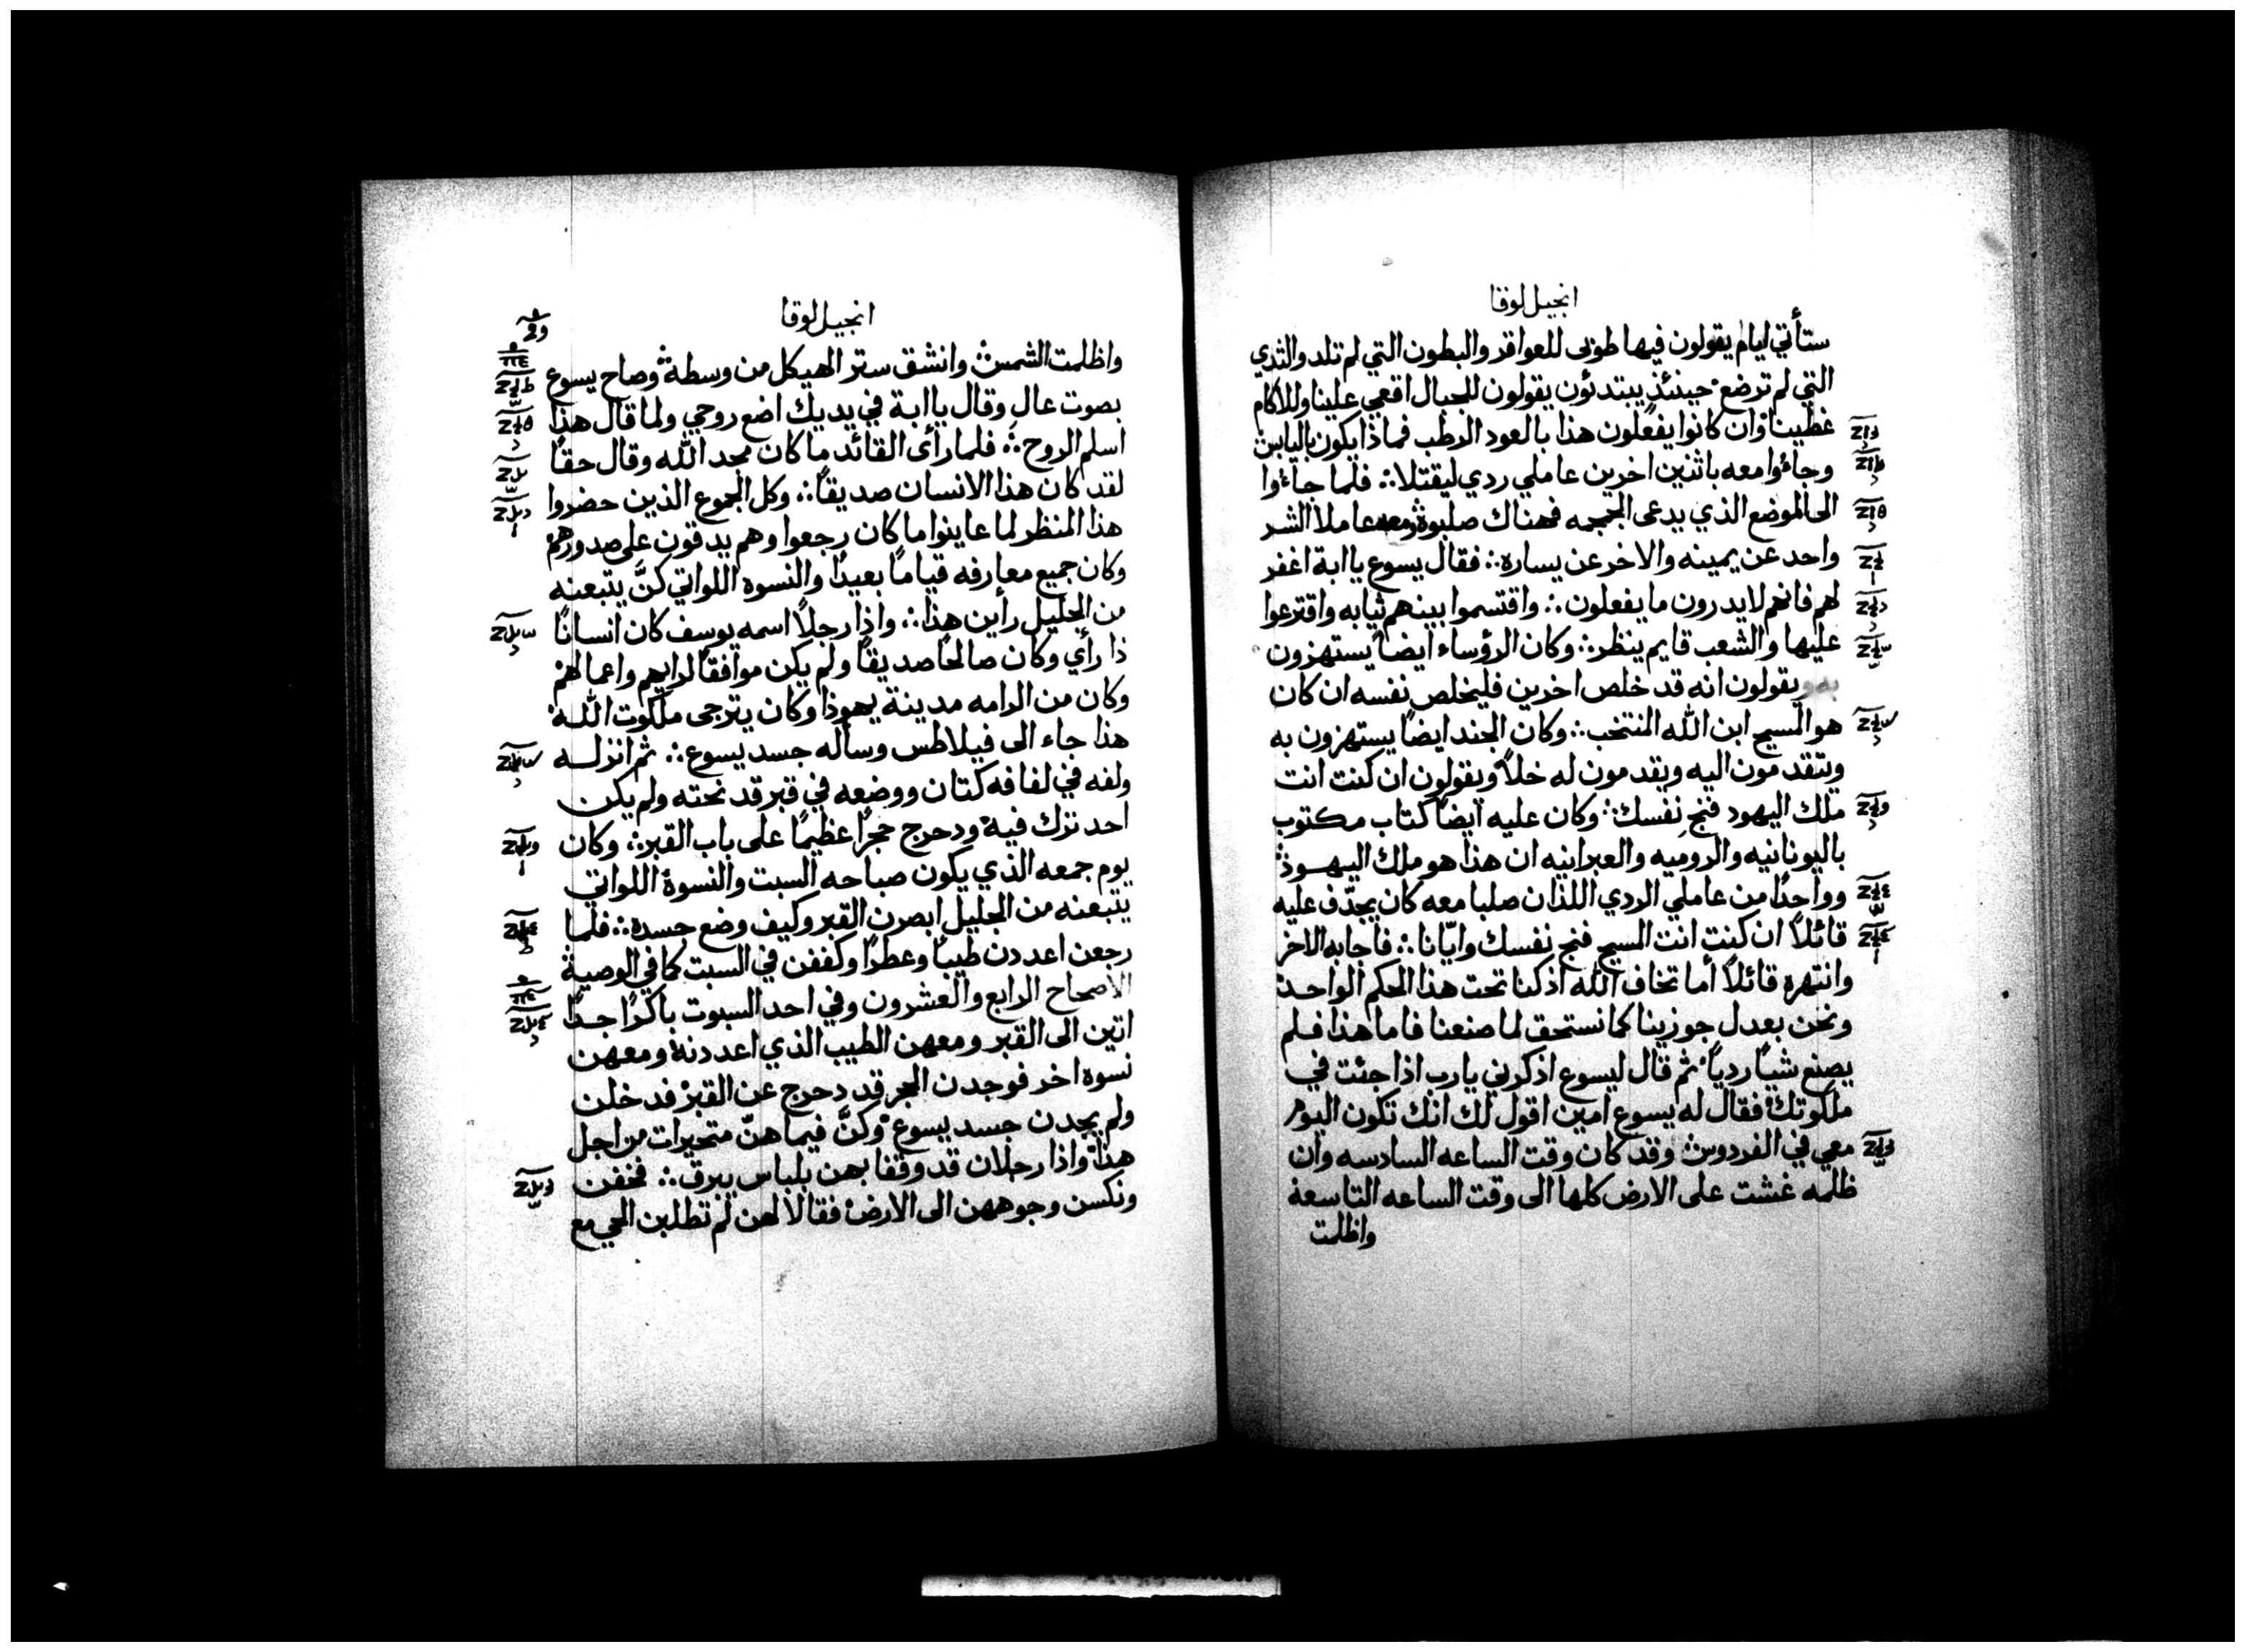 انجيل لوقا
ستأتي ايام يقولون فيها طوبى للعواقر والبطون التي لم تلد والثدي
التي لم ترضع حينئذ يبتدئون يقولون للجبال اقعي علينا وللاكام
غطينا وان كانوا يفعلون هذا بالعود الرطب فماذا يكون باليابس
وجاءوا معه باثنين اخرين عاملي ردي ليقتلا ∴ فلما جاءوا
الى الموضع الذي يدعى الجمجمه فهناك صلبوه ومعه عاملا الشر
واحد عن يمينه والاخر عن يساره ∴ فقال يسوع يا ابة اغفر
لهم فانهم لا يدرون ما يفعلون ∴ واقتسموا بينهم ثيابه واقترعوا
عليها والشعب قايم ينظر ∴ وكان الرؤساء ايضاً يستهزون
به ويقولون انه قد خلص اخرين فليخلص نفسه ان كان
هو المسيح ابن الله المنتخب ∴ وكان الجند ايضاً يستهزون به
ويتقدمون اليه ويقدمون له خلاً ويقولون ان كنت انت
ملك اليهود فنج نفسك ∴ وكان عليه ايضاً كتاب مكتوب
باليونانيه والروميه والعبرانيه ان هذا هو ملك اليهود
وواحدًا من عاملي الردي اللذان صلبا معه كان يجدّف عليه
قائلاً ان كنت انت المسيح فنج نفسك وايّانا ∴ فاجابه الاخر
وانتهره قائلاً أما تخاف الله اذ كنا تحت هذا الحكم الواحد
ونحن بعدل جوزينا كما نستحق لما صنعنا فاما هذا فلم
يصنع شياً ردياً ثم قال ليسوع اذكرني يا رب اذا جئت في
ملكوتك فقال له يسوع امين اقول لك انك تكون اليوم
معي في الفردوس وقد كان وقت الساعه السادسه وان
ظلمه غشت على الارض كلها الى وقت الساعه التاسعة
واظلمت
انجيل لوقا
واظلمت الشمس وانشق ستر الهيكل من وسطه وصاح يسوع
بصوت عالٍ وقال يا ابة في يديك اضع روحي ولما قال هذا
اسلم الروح ∴ فلما رأى القائد ما كان مجد الله وقال حقًا
لقد كان هذا الانسان صديقاً ∴ وكل الجموع الذين حضروا
هذا المنظر لما عاينوا ما كان رجعوا وهم يدقون على صدورهم
وكان جميع معارفه قياماً بعيدًا والنسوه اللواتي كنَّ يتبعنه
من الجليل رأين هذا ∴ واذا رجلاً اسمه يوسف كان انسانًا
ذا رأي وكان صالحاً صديقاً ولم يكن موافقاً لرايهم واعمالهم
وكان من الرامه مدينة يهوذا وكان يترجى ملكوت الله
هذا جاء الى فيلاطس وسأله جسد يسوع ∴ ثم انزله
ولفه في لفافه كتان ووضعه في قبر قد نحته ولم يكن
احد نزك فيه ودحرج حجرًا عظيمًا على باب القبر ∴ وكان
يوم جمعه الذي يكون صباحه السبت والنسوة اللواتي
يتبعنه من الجليل ابصرن القبر وكيف وضع جسده ∴ فلما
رجعن اعددن طيباً وعطرًا وكففن في السبت كما في الوصية
الاصحاح الرابع والعشرون وفي احد السبوت باكرًا جدًا
اتين الى القبر ومعهن الطيب الذي اعددنه ومعهن
نسوه اخر فوجدن الحجر قد دحرج عن القبر فدخلن
ولم يجدن جسد يسوع وكنَّ فيما هنّ متحيرات من اجل
هذا واذا رجلان قد وقفا بهن بلباس يبرق ∴ فخفن
ونكسن وجوههن الى الارض فقالا لهن لم تطلبن الحي مع